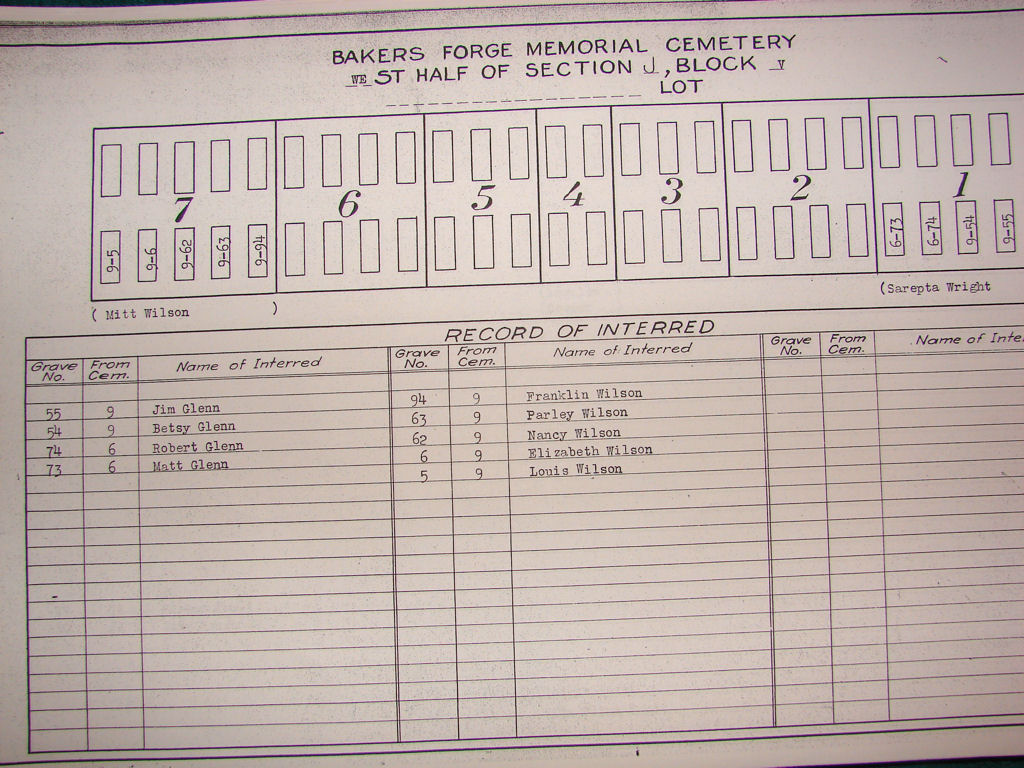 BAKERS FORGE MEMORIAL CEMETERY
WEST HALF OF SECTION J, BLOCK V
LOT
7 6 5 4 3 2 1
9-5 9-6 9-62 9-63 9-94 6-73 6-74 9-54 9-55
( Mitt Wilson ) (Sarepta Wright
RECORD OF INTERRED
Grave No. From Cem. Name of Interred Grave No. From Cem. Name of Interred Grave No. From Cem. Name of Inte
55 9 Jim Glenn 94 9 Franklin Wilson
54 9 Betsy Glenn 63 9 Parley Wilson
74 6 Robert Glenn 62 9 Nancy Wilson
73 6 Matt Glenn 6 9 Elizabeth Wilson
5 9 Louis Wilson